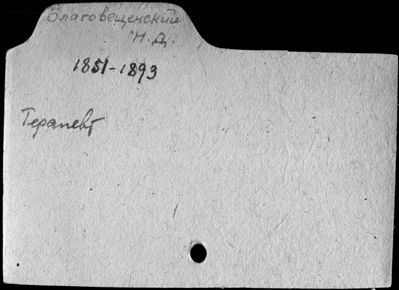 Благовещенский
Н. Д.
1851-1893
Терапевт